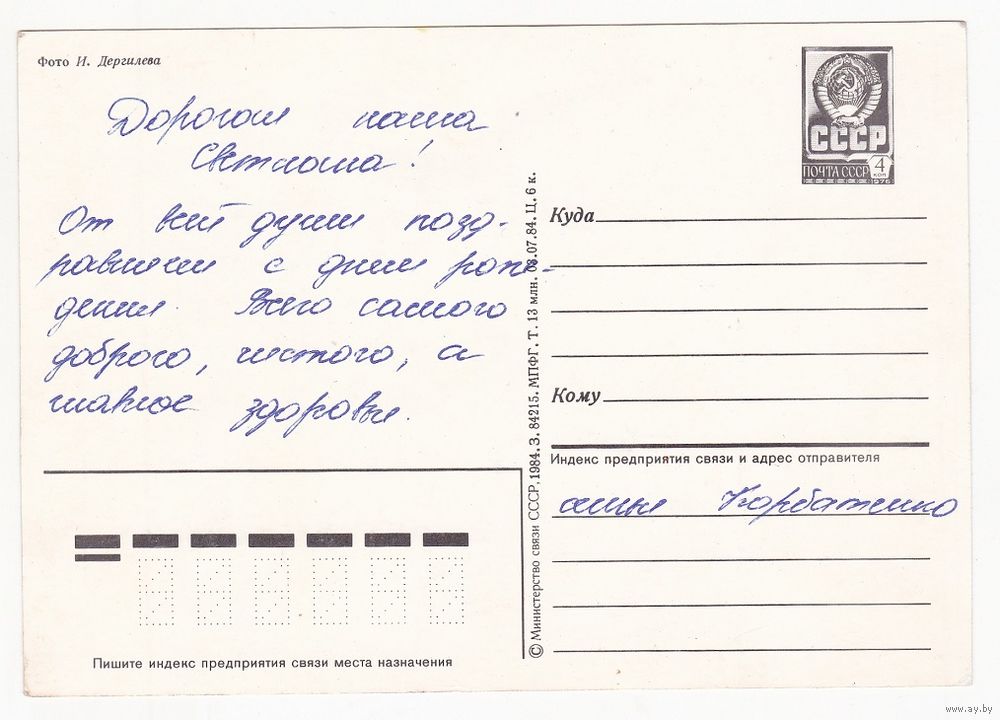 Фото И. Дергилева
Дорогая наша
Светлаша!
От всей души позд-
равляем с днем рож-
дения. Всего самого
доброго, чистого, а
главное здоровья.
СССР
ПОЧТА СССР
4
КОП
1976
Куда
Кому
Индекс предприятия связи и адрес отправителя
семья Корбатенко
© Министерство связи СССР. 1984. З. 84215. МПФГ. Т. 13 млн. 03.07.84. Ц. 6 к.
Пишите индекс предприятия связи места назначения
www.ay.by